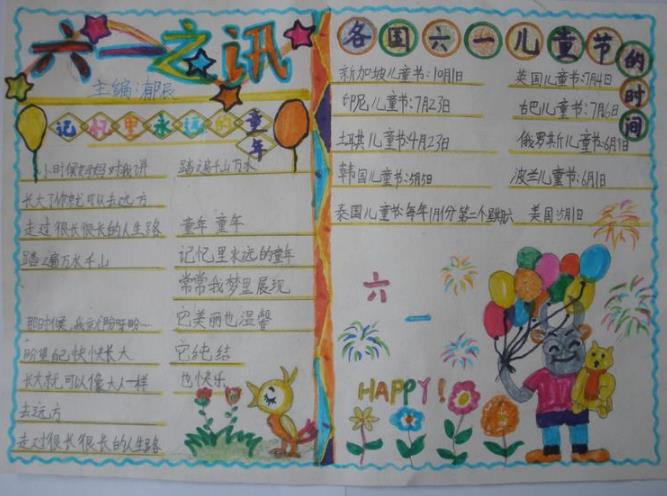 六一之讯
主编:郁辰
记忆里永远的童年
小时候妈妈对我讲
长大了你就可以去远方
走过很长很长的人生路
踏遍万水千山
那时候,我就盼呀盼~
盼望自己快快长大
长大就可以像大人一样
去远方
走过很长很长的人生路
踏遍千山万水
童年 童年
记忆里永远的童年
常常我梦里展现
它美丽也温馨
它纯结
也快乐
各国六一儿童节的时间
新加坡儿童节:10月1日
英国儿童节:7月4日
印尼儿童节:7月23日
古巴儿童节:7月6日
土耳其儿童节4月23日
俄罗斯儿童节:6月1日
韩国儿童节:5月5日
波兰儿童节:6月1日
泰国儿童节:每年1月份第二个星期六
美国:5月1日
六一
HAPPY!